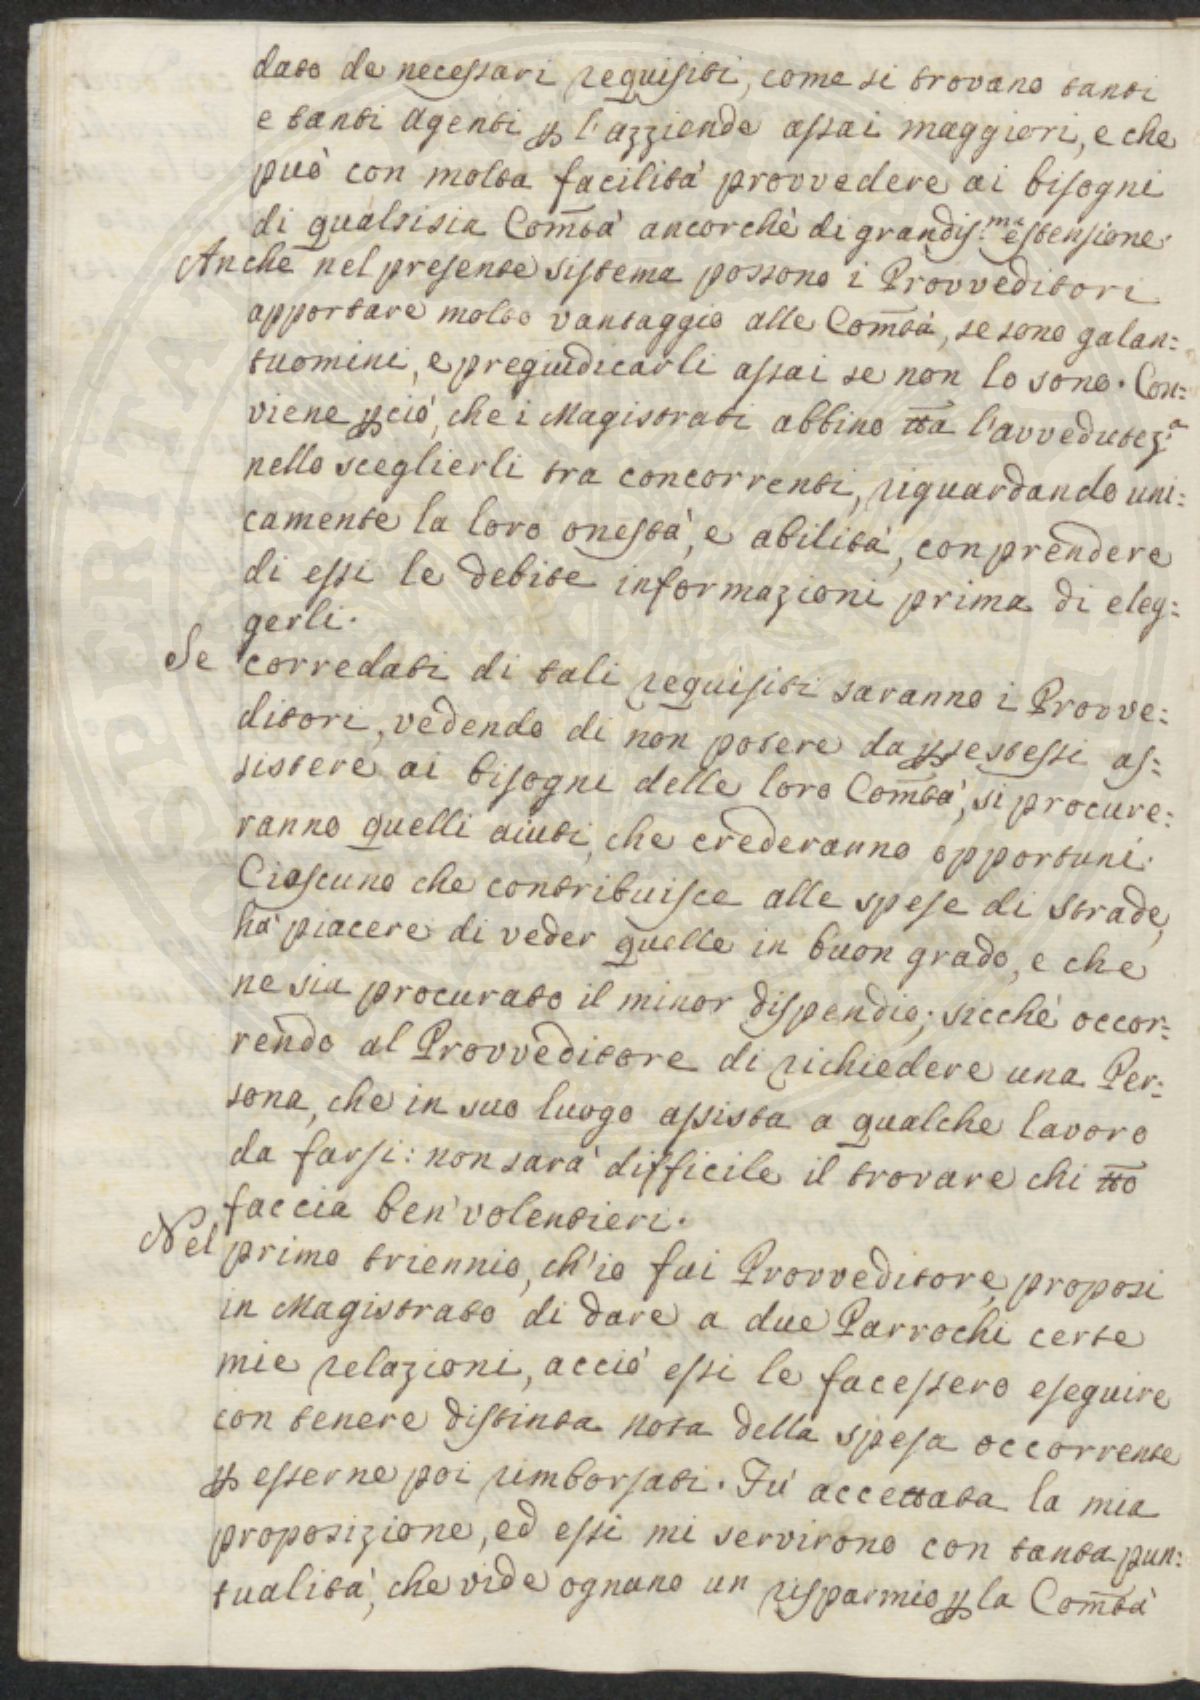 dato de necessari requisiti, come si trovano tanti
e tanti Agenti ꝑ l'azziende assai maggiori, e che
può con molta facilità provvedere ai bisogni
di qualsisia Com̄tà ancorchè di grandis.ma estensione.
Anche nel presente sistema possono i Provveditori
apportare molto vantaggio alle Com̄tà, se sono galan:
tuomini, e pregiudicarli assai se non lo sono. Con:
viene ꝑciò, che i Magistrati abbino tt̄a l'avvedutez.a
nello sceglierli tra concorrenti, riguardando uni:
camente la loro onestà, e abilità, con prendere
di essi le debite informazioni prima di eleg:
gerli.
Se corredati di tali requisiti saranno i Provve:
ditori, vedendo di non potere da ꝑ se stessi as:
sistere ai bisogni delle loro Com̄tà, si procure:
ranno quelli aiuti, che crederanno opportuni.
Ciascuno che contribuisce alle spese di Strade,
hà piacere di veder quelle in buon grado, e che
ne sia procurato il minor dispendio; sicchè occor:
rendo al Provveditore di richiedere una Per:
sona, che in suo luogo assista a qualche lavoro
da farsi: non sarà difficile il trovare chi tt̄o
faccia ben' volentieri.
Nel primo triennio, ch'io fui Provveditore, proposi
in Magistrato di dare a due Parrochi certe
mie relazioni, acciò essi le facessero eseguire
con tenere distinta nota della spesa occorrente
ꝑ esserne poi rimborsati. Fù accettata la mia
proposizione, ed essi mi servirono con tanta pun:
tualità, che vide ognuno un risparmio ꝑ la Com̄tà